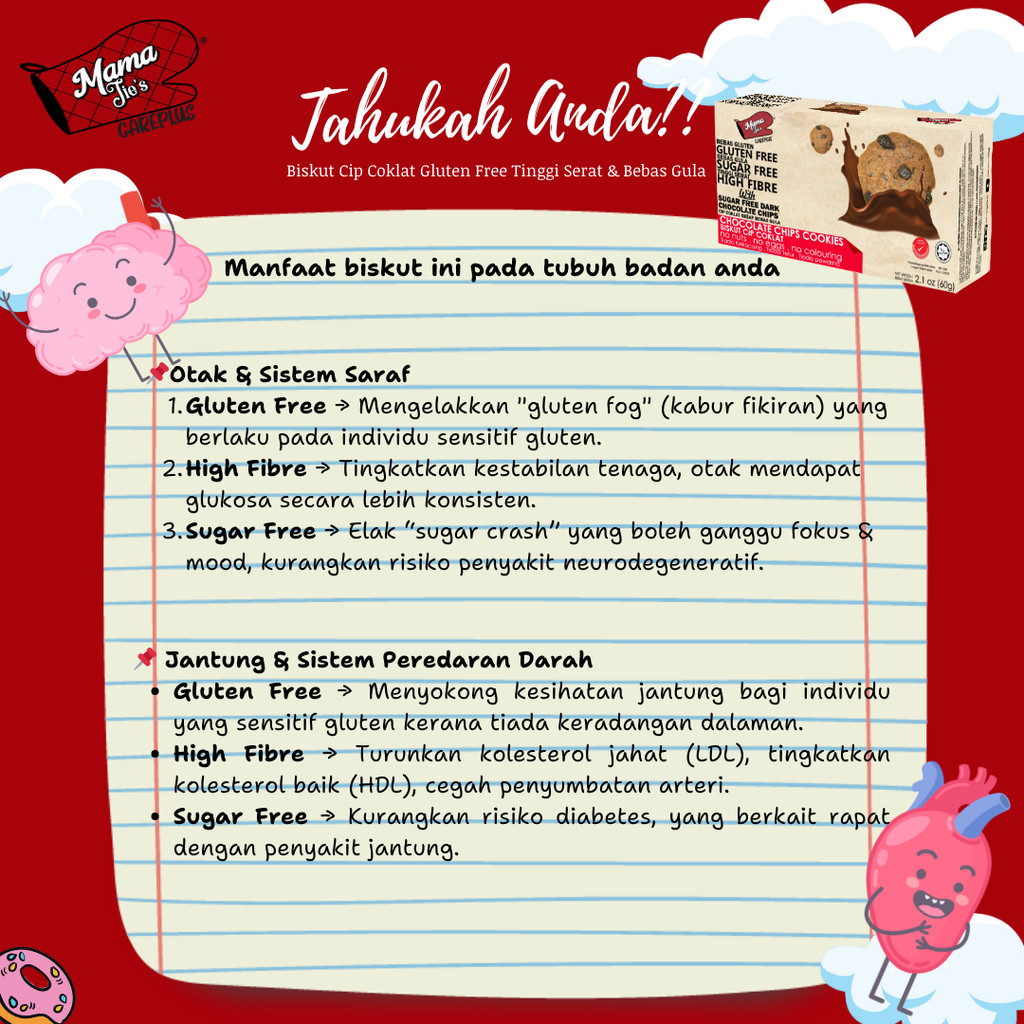 Mama
Tie's
CAREPLUS
Tahukah Anda??
Biskut Cip Coklat Gluten Free Tinggi Serat & Bebas Gula
BEBAS GLUTEN
GLUTEN FREE
BEBAS GULA
SUGAR FREE
HIGH FIBRE
With
SUGAR FREE DARK
CHOCOLATE CHIPS
CHOCOLATE CHIPS COOKIES
BISKUT CIP COKLAT
no nuts . no eggs . no colouring
2.1 oz (60g)
Manfaat biskut ini pada tubuh badan anda
📌Otak & Sistem Saraf
1. Gluten Free → Mengelakkan "gluten fog" (kabur fikiran) yang
berlaku pada individu sensitif gluten.
2. High Fibre → Tingkatkan kestabilan tenaga, otak mendapat
glukosa secara lebih konsisten.
3. Sugar Free → Elak “sugar crash” yang boleh ganggu fokus &
mood, kurangkan risiko penyakit neurodegeneratif.
📌 Jantung & Sistem Peredaran Darah
• Gluten Free → Menyokong kesihatan jantung bagi individu
yang sensitif gluten kerana tiada keradangan dalaman.
• High Fibre → Turunkan kolesterol jahat (LDL), tingkatkan
kolesterol baik (HDL), cegah penyumbatan arteri.
• Sugar Free → Kurangkan risiko diabetes, yang berkait rapat
dengan penyakit jantung.